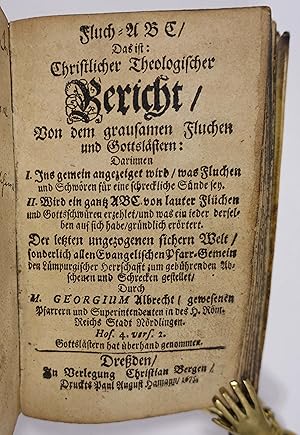 Fluch-A B C/
Das ist:
Christlicher Theologischer
Bericht/
Von dem grausamen Fluchen
und Gottslästern:
Darinnen
I. Ins gemein angezeiget wird/ was Fluchen
und Schwören für eine schreckliche Sünde sey.
II. Wird ein gantz ABC von lauter Flüchen
und Gottsschwüren erzehlet/ und was ein ieder dersel-
ben auf sich habe/ gründlich erörtert.
Der letzten ungezogenen sichern Welt/
sonderlich allen Evangelischen Pfarr-Gemein
den Limpurgischer Herrschafft zum gebührenden Ab-
scheuen und Schrecken gestellet/
Durch
M. GEORGIUM Albrecht/ gewesenen
Pfarrern und Superintendenten in des H. Röm.
Reichs Stadt Nördlingen.
Hos. 4. vers. 2.
Gottslästern hat überhand genommen.
Dreßden/
In Verlegung Christian Bergen/
Druckts Paul August Hamann/